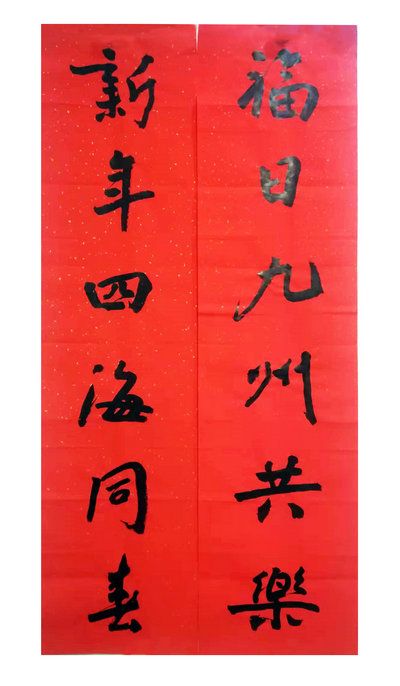 福日九州共樂
新年四海同春